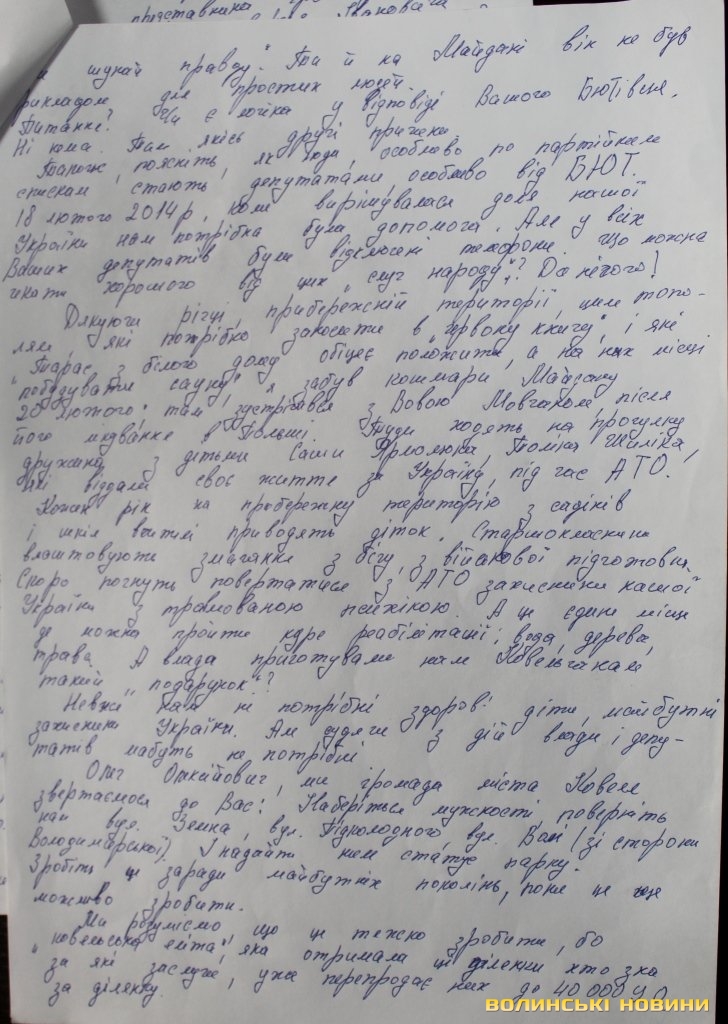 представника
Івановича
й шукай правду". Та й на Майдані він не був
прикладом для простих людей.
Питання? Чи є логіка у відповіді Вашого Бютівця.
Ні нема. Там якісь другі причени.
Також, поясніть, як люди, особливо по партійним
спискам стають депутатами особливо від БЮТ.
18 лютого 2014р, коли вирішувалася доля нашої
України нам потрібна була допомога. Але у всіх
Ваших депутатів були відключені телефони. Що можна
чекати хорошого від цих "слуг народу"? Да нічого!
Дякуючи річці, прибережній території, цим топо-
лям, які потрібно заносити в "червону книгу", і які
"Тарас з білого дому обіцяє положити, а на них місці
побудувати сауну", я забув кошмари Майдану
20 лютого там зустрічався з Вовою Мовчаном, після
його лікування в Польщі. Туди ходять на прогулку
дружини з дітьми Саши Ярмолюка, Толіка Шиліка,
які віддали своє життя за Україну, під час АТО.
Кожен рік на пробережну територію з садіків
і шкіл вчителі приводять діток. Старшокласники
влаштовують змагання з бігу, з військової підготовки.
Скоро почнуть повертатися з АТО захисники нашої
України з травмованою психікою. А це єдине місце
де можна пройти курс реабілітації: вода, дерева,
трава. А влада приготували нам Ковельчанам
такий "подарунок"?
Невже нам не потрібні здорові діти, майбутні
захисники України. Але судячи з дій влади і депу-
татів мабуть не потрібні
Олег, ми громада міста Ковеля
звертаємося до Вас! Наберіться мужності, поверніть
нам вул. Земна, вул. Підколодного, вул. Валі (зі сторони
Володимирської). І надайте нам статус парку.
Зробіть це заради майбутніх поколінь, поки це ще
можливо зробити.
Ми розуміємо що це тяжко зробити, бо
"ковельська еліта", яка отримала ці ділянки хто зна
за які заслуги, уже перепродає них до 40 000 у.о
за ділянку.
ВОЛИНСЬКІ НОВИНИ